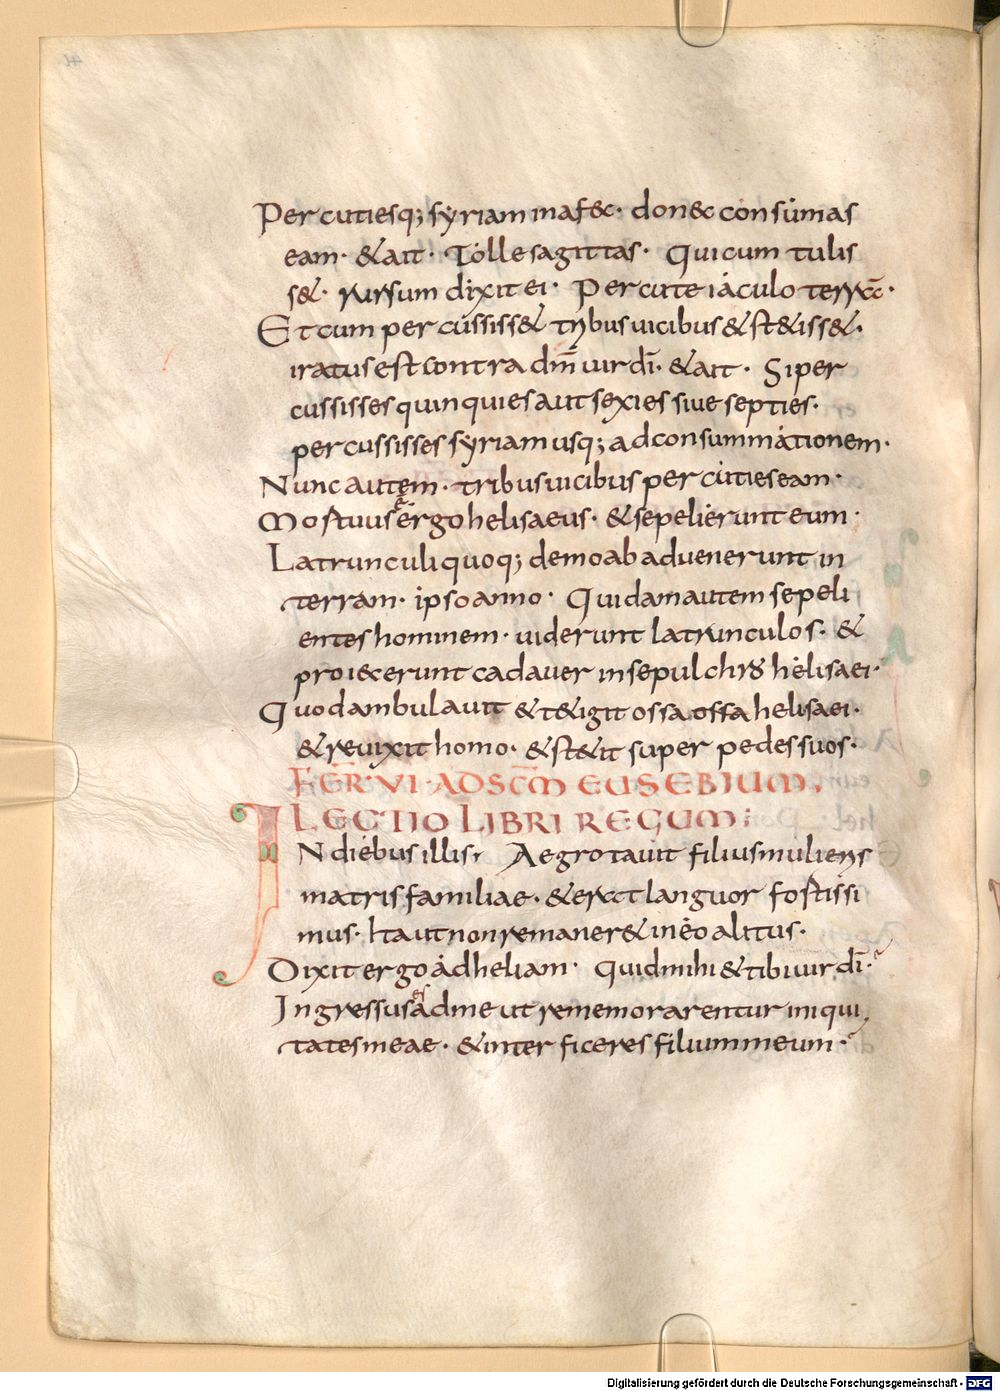 Percutiesq; syriam in afec· donec consumas
eam· & ait· Tolle sagittas· Qui cum tulis
s&· rursum dixit ei· Percute iaculo terrā·
Et cum percussiss& tribus uicibus & st&iss&·
iratus est contra dm̄ uir dī· & ait· Si per
cussisses quinquies aut sexies siue septies·
percussisses syriam usq; ad consummationem·
Nunc autem· tribus uicibus percuties eam·
Mortuus ē ergo helisaeus· & sepelierunt eum·
Latrunculi quoq; de moab aduenerunt in
terram· ipso anno· Quidam autem sepeli
entes hominem· uiderunt latrunculos· &
proiecerunt cadauer in sepulchro helisaei·
Quod ambulauit & t&igit ossa ossa helisaei·
& reuixit homo· & st&it super pedes suos·
FER·VI·AD SC̄M EUSEBIUM,
LECTIO LIBRI REGUM:
IN diebus illis· Aegrotauit filius mulieris
matris familiae· & erat languor fortissi
mus· Ita ut non reman&er& in eo alitus·
Dixit ergo ad heliam· Quid mihi & tibi uir dī·
Ingressus es ad me ut rememorarentur iniqui,
tates meae· & interficeres filium meum·
Digitalisierung gefördert durch die Deutsche Forschungsgemeinschaft - DFG